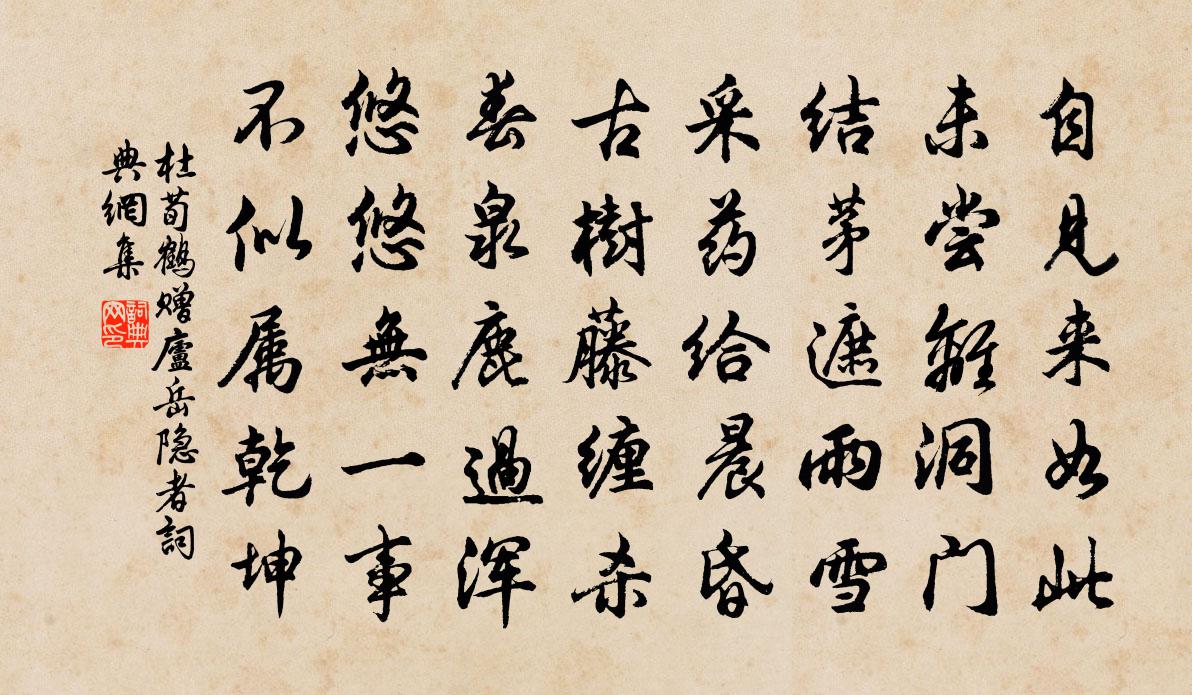 自見来如此
未尝離洞门
结茅遮雨雪
采药给晨昏
古樹藤缠杀
春泉鹿過浑
悠悠無一事
不似属乾坤
杜荀鶴赠廬岳隐者詞
典網集
詞典
网印